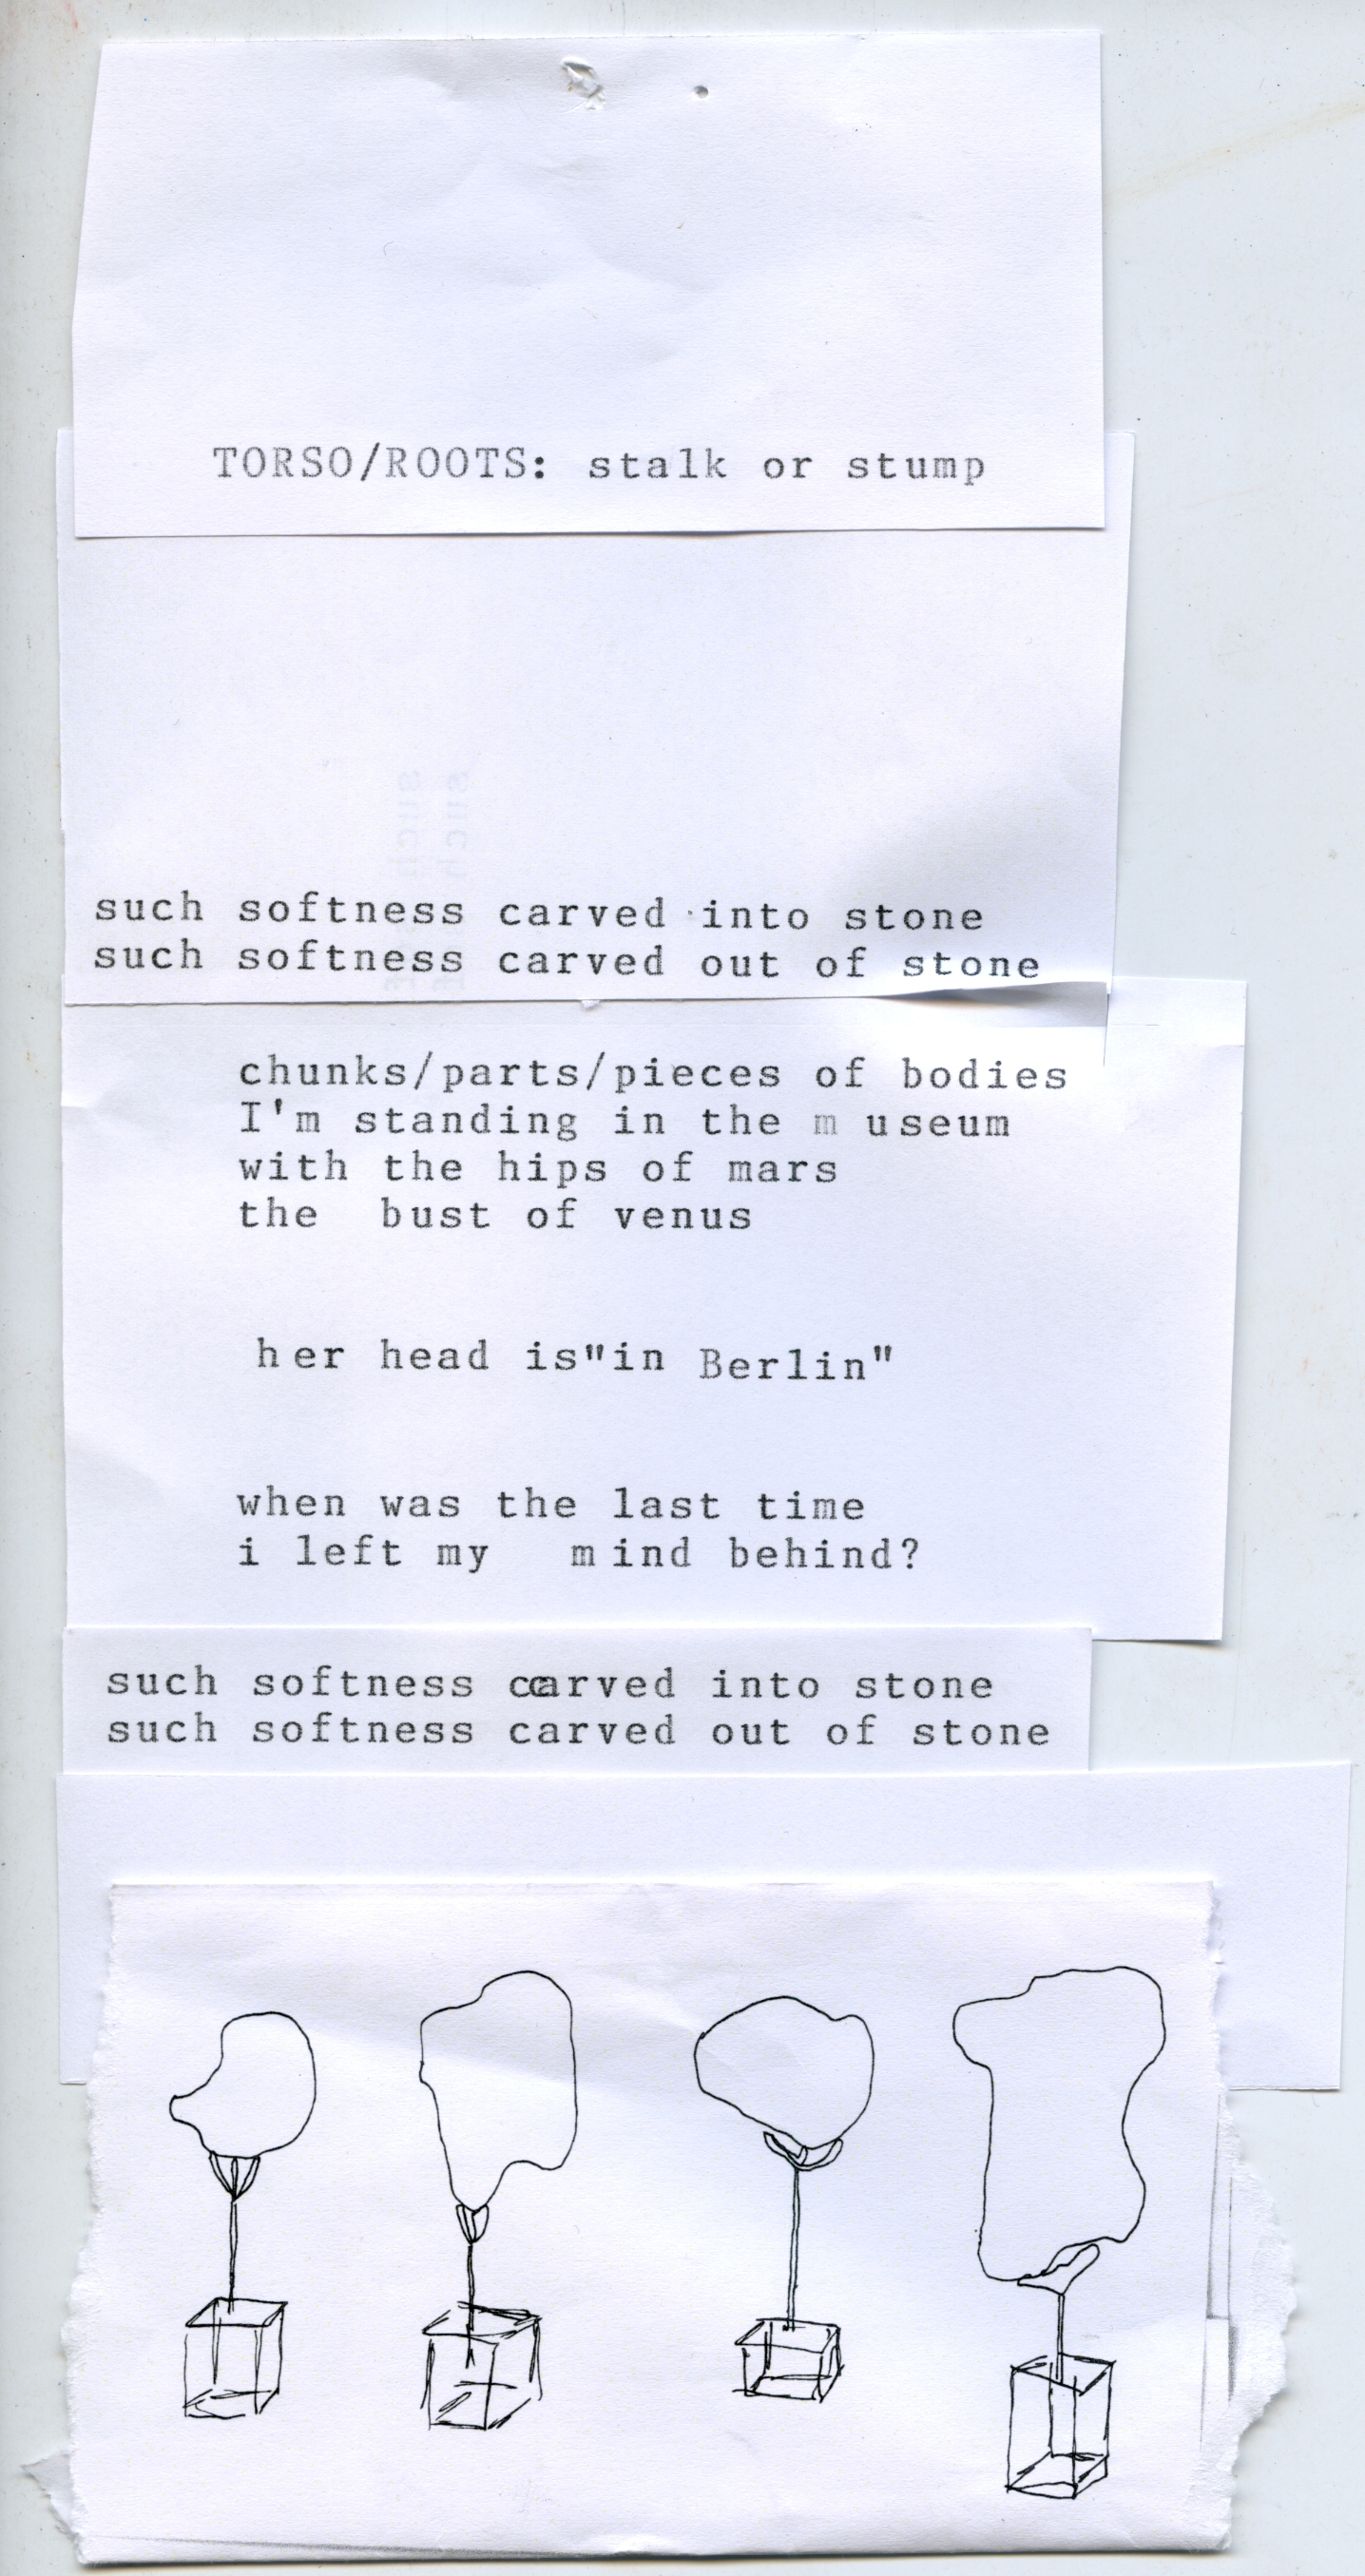 TORSO/ROOTS: stalk or stump
such softness carved into stone
such softness carved out of stone
chunks/parts/pieces of bodies
I'm standing in the m useum
with the hips of mars
the  bust of venus
her head is"in Berlin"
when was the last time
i left my   mind behind?
such softness carved into stone
such softness carved out of stone